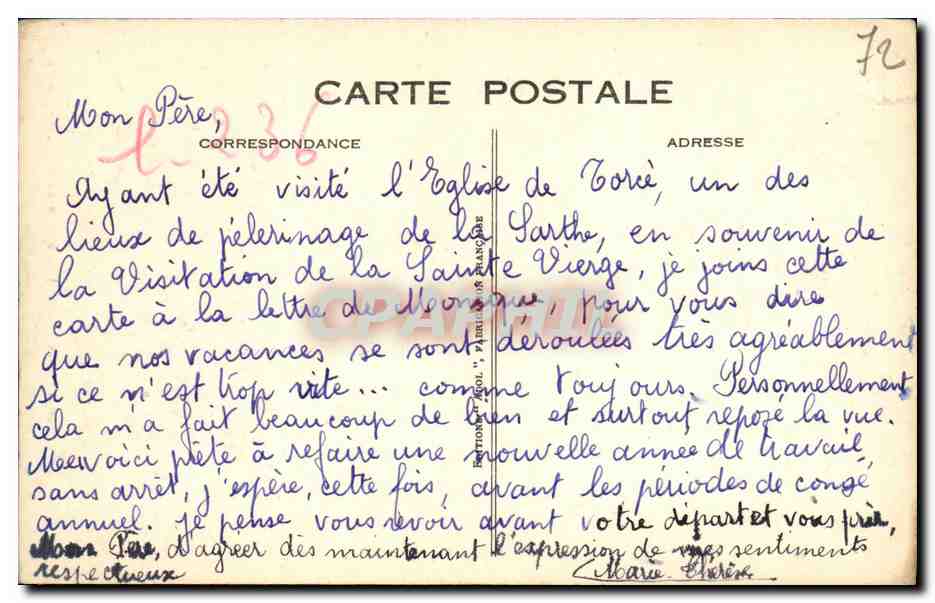 72
CARTE POSTALE
Mon Père,
l-236
CORRESPONDANCE
ADRESSE
Ayant été visité l'Eglise de Torcè, un des
lieux de pélerinage de la Sarthe, en souvenir de
la Visitation de la Sainte Vierge, je joins cette
carte à la lettre de Monique, pour vous dire
que nos vacances se sont déroulées très agréablement
si ce n'est trop vite... comme toujours. Personnellement
cela m'a fait beaucoup de bien et surtout reposé la vue.
Me voici prête à refaire une nouvelle année de travail
sans arrêt, j'espère, cette fois, avant les périodes de congé
annuel. Je pense vous revoir avant votre départ et vous prier,
Mon Père, d'agréer dès maintenant l'expression de mes sentiments
respectueux
Marie Thérèse
EDITIONS "AGOL", FABRICATION FRANÇAISE
CPAPHIL